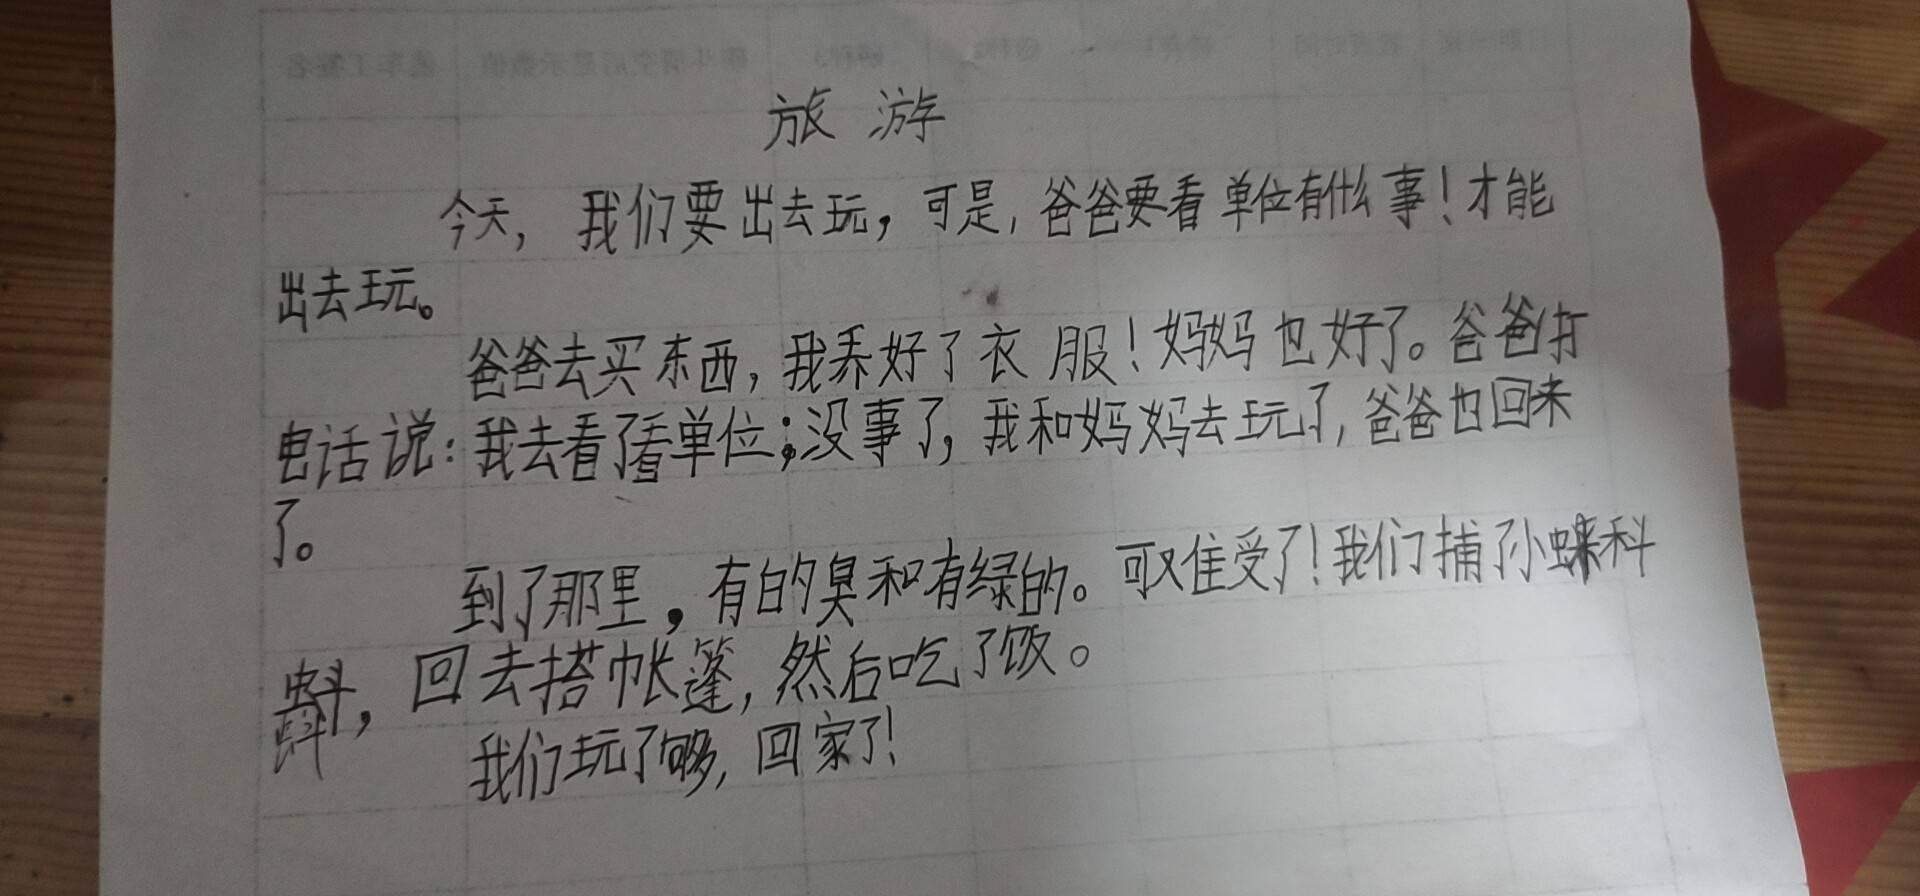 旅游
今天，我们要出去玩，可是，爸爸要看单位有什么事！才能
出去玩。
爸爸去买东西，我养好了衣服！妈妈也好了。爸爸打
电话说：我去看了看单位；没事了，我和妈妈去玩了，爸爸也回来
了。
到了那里，有的臭和有绿的。可又佳受了！我们捕了小蝌科
蚪，回去搭帐篷，然后吃了饭。
我们玩了够，回家了！